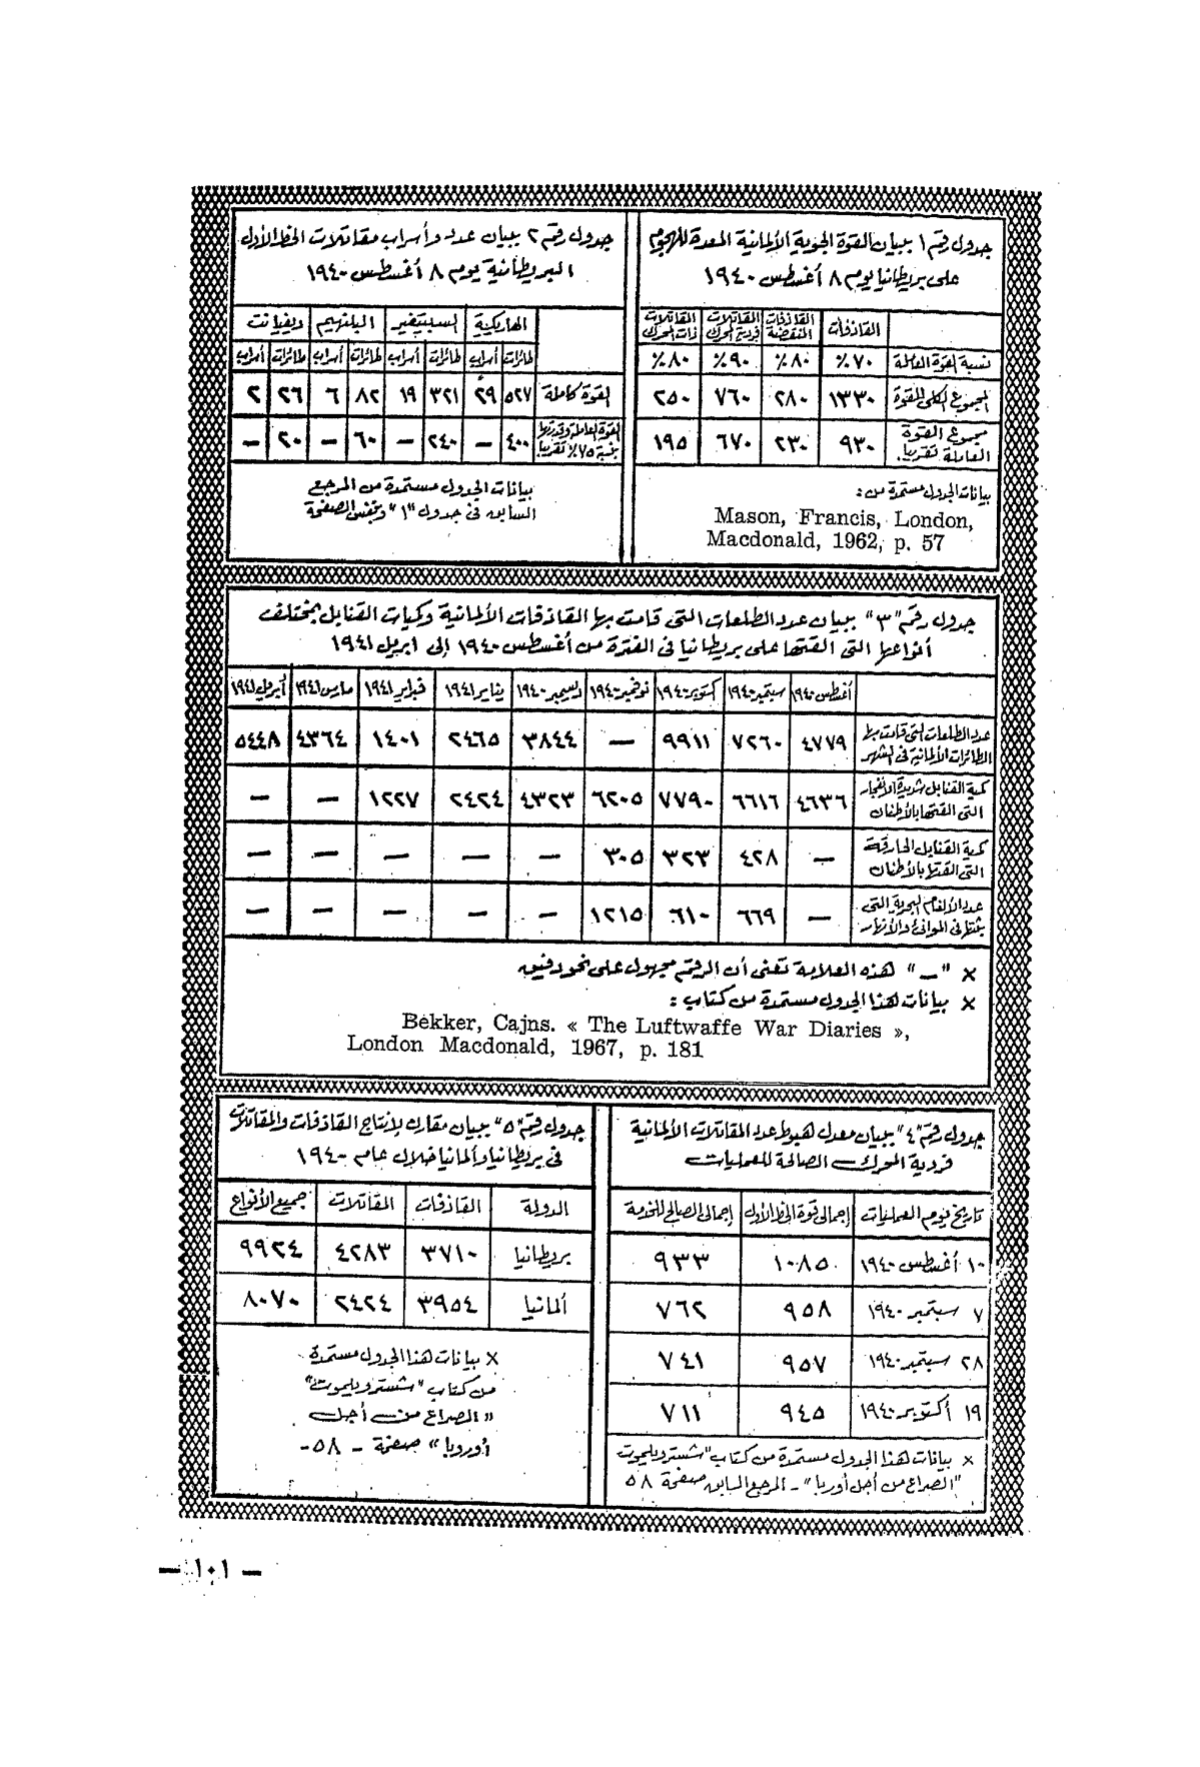 جدول رقم ١ ببيان القوة الجوية الألمانية المعدة للهجوم
على بريطانيا يوم ٨ أغسطس ١٩٤٠
القاذفات | القاذفات المنقضة | المقاتلات فردية المحرك | المقاتلات ذات المحرك
نسبة القوة العاملة | ٧٠٪ | ٨٠٪ | ٩٠٪ | ٨٠٪
المجموع الكلى للقوة | ١٣٣٠ | ٢٨٠ | ٧٦٠ | ٢٥٠
مجموع القوة العاملة تقريبا. | ٩٣٠ | ٢٣٠ | ٦٧٠ | ١٩٥
بيانات الجدول مستمدة من :
Mason, Francis, London,
Macdonald, 1962, p. 57
جدول رقم ٢ ببيان عدد وأسراب مقاتلات الخط الأول
البريطانية يوم ٨ أغسطس ١٩٤٠
الهاريكية | اسبيتفير | البلنهيم | ديفيانت
طائرات | أسراب | طائرات | أسراب | طائرات | أسراب | طائرات | أسراب
القوة كاملة | ٥٢٧ | ٢٩ | ٣٢١ | ١٩ | ٨٢ | ٦ | ٢٦ | ٢
القوة العاملة وقدرها بنسبة ٧٥٪ تقريبا | ٤٠٠ | — | ٢٤٠ | — | ٦٠ | — | ٢٠ | —
بيانات الجدول مستمدة من المرجع
السابق فى جدول "١" وبنفس الصفحة
جدول رقم "٣" ببيان عدد الطلعات التى قامت بها القاذفات الألمانية وكميات القنابل بمختلف
أنواعها التى القتها على بريطانيا فى الفترة من أغسطس ١٩٤٠ إلى ابريل ١٩٤١
أغسطس ١٩٤٠ | سبتمبر ١٩٤٠ | كتوبر ١٩٤٠ | نوفمبر ١٩٤٠ | ديسمبر ١٩٤٠ | يناير ١٩٤١ | فبراير ١٩٤١ | مارس ١٩٤١ | أبريل ١٩٤١
عدد الطلعات التى قامت بها الطائرات الألمانية فى الشهر | ٤٧٧٩ | ٧٢٦٠ | ٩٩١١ | — | ٣٨٤٤ | ٢٤٦٥ | ١٤٠١ | ٤٣٦٤ | ٥٤٤٨
كمية القنابل شديدة الانفجار التى القتها بالأطنان | ٤٦٣٦ | ٦٦١٦ | ٧٧٩٠ | ٦٢٠٥ | ٤٣٢٣ | ٢٤٢٤ | ١٢٢٧ | — | —
كمية القنابل الحارقة التى القتها بالأطنان | — | ٤٢٨ | ٣٢٣ | ٣٠٥ | — | — | — | — | —
عدد الألغام البحرية التى بثتها فى الموانئ والأنهار | — | ٦٦٩ | ٦١٠ | ١٢١٥ | — | — | — | — | —
× "—" هذه العلامة تعنى أن الرقم مجهول على نحو دقيق
× بيانات هذا الجدول مستمدة من كتاب :
Bekker, Cajns. « The Luftwaffe War Diaries »,
London Macdonald, 1967, p. 181
جدول رقم "٤" ببيان معدل هبوط عدد المقاتلات الألمانية
فردية المحرك الصالحة للعمليات
تاريخ يوم العمليات | إجمالى قوة الخط الأول | إجمالى الصالح للخدمة
١٠ أغسطس ١٩٤٠ | ١٠٨٥ | ٩٣٣
٧ سبتمبر ١٩٤٠ | ٩٥٨ | ٧٦٢
٢٨ سبتمبر ١٩٤٠ | ٩٥٧ | ٧٤١
١٩ أكتوبر ١٩٤٠ | ٩٤٥ | ٧١١
× بيانات هذا الجدول مستمدة من كتاب "شستر ويلموت
"الصراع من أجل أوربا" - المرجع السابق صفحة ٥٨
جدول رقم "٥" ببيان مقارن لإنتاج القاذفات والمقاتلات
فى بريطانيا وألمانيا خلال عام ١٩٤٠
الدولة | القاذفات | المقاتلات | جميع الأنواع
بريطانيا | ٣٧١٠ | ٤٢٨٣ | ٩٩٢٤
ألمانيا | ٣٩٥٤ | ٢٤٢٤ | ٨٠٧٠
× بيانات هذا الجدول مستمدة
من كتاب "شستر ويلموت"
"الصراع من أجل
أوروبا" صفحة - ٥٨-
— ١٠١ —